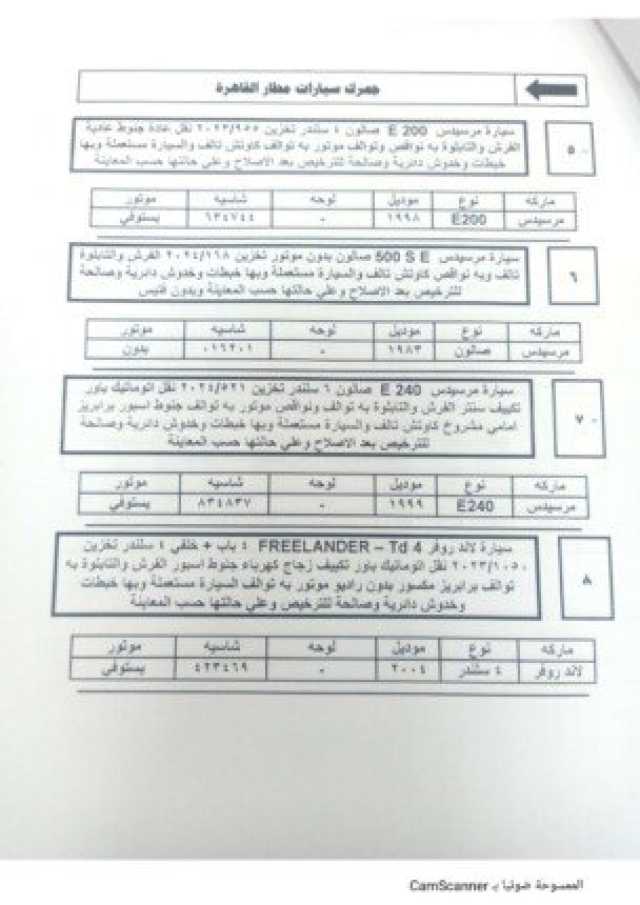 جمرك سيارات مطار القاهرة
٥ -
سيارة مرسيدس E 200 صالون ٤ سلندر تخزين ٢٠٢٣/٩٥٥ نقل عادة جنوط عادية
الفرش والتابلوة به نواقص وتوالف موتور به توالف كاوتش تالف والسيارة مستعملة وبها
خبطات وخدوش دائرية وصالحة للترخيص بعد الاصلاح وعلي حالتها حسب المعاينة
ماركه نوع موديل لوحه شاسيه موتور
مرسيدس E200 ١٩٩٨ - ٦٣٤٧٤٤ يستوفي
٦
سيارة مرسيدس 500 S E صالون بدون موتور تخزين ٢٠٢٤/١١٨ الفرش والتابلوة
تالف وبه نواقص كاوتش تالف والسيارة مستعملة وبها خبطات وخدوش دائرية وصالحة
للترخيص بعد الاصلاح وعلي حالتها حسب المعاينة وبدون فتيس
ماركه نوع موديل لوحه شاسيه موتور
مرسيدس صالون ١٩٨٣ - ٠١٦٢٠١ بدون
٧ -
سيارة مرسيدس E 240 صالون ٦ سلندر تخزين ٢٠٢٤/٥٢١ نقل اتوماتيك باور
تكييف سنتر الفرش والتابلوة به توالف ونواقص موتور به توالف جنوط اسبور برابريز
امامي مشروخ كاوتش تالف والسيارة مستعملة وبها خبطات وخدوش دائرية وصالحة
للترخيص بعد الاصلاح وعلي حالتها حسب المعاينة
ماركه نوع موديل لوحه شاسيه موتور
مرسيدس E240 ١٩٩٩ - ٨٣٤٨٣٧ يستوفي
٨
سيارة لاند روفر FREELANDER – Td 4 ٤ باب + خلفي ٤ سلندر تخزين
٢٠٢٣/١٠٥٠ نقل اتوماتيك باور تكييف زجاج كهرباء جنوط اسبور الفرش والتابلوة به
توالف برابريز مكسور بدون راديو موتور به توالف السيارة مستعملة وبها خبطات
وخدوش دائرية وصالحة للترخيص وعلي حالتها حسب المعاينة
ماركه نوع موديل لوحه شاسيه موتور
لاند روفر ٤ سلندر ٢٠٠٤ - ٤٢٣٤٦٩ يستوفي
الممسوحة ضوئيا بـ CamScanner